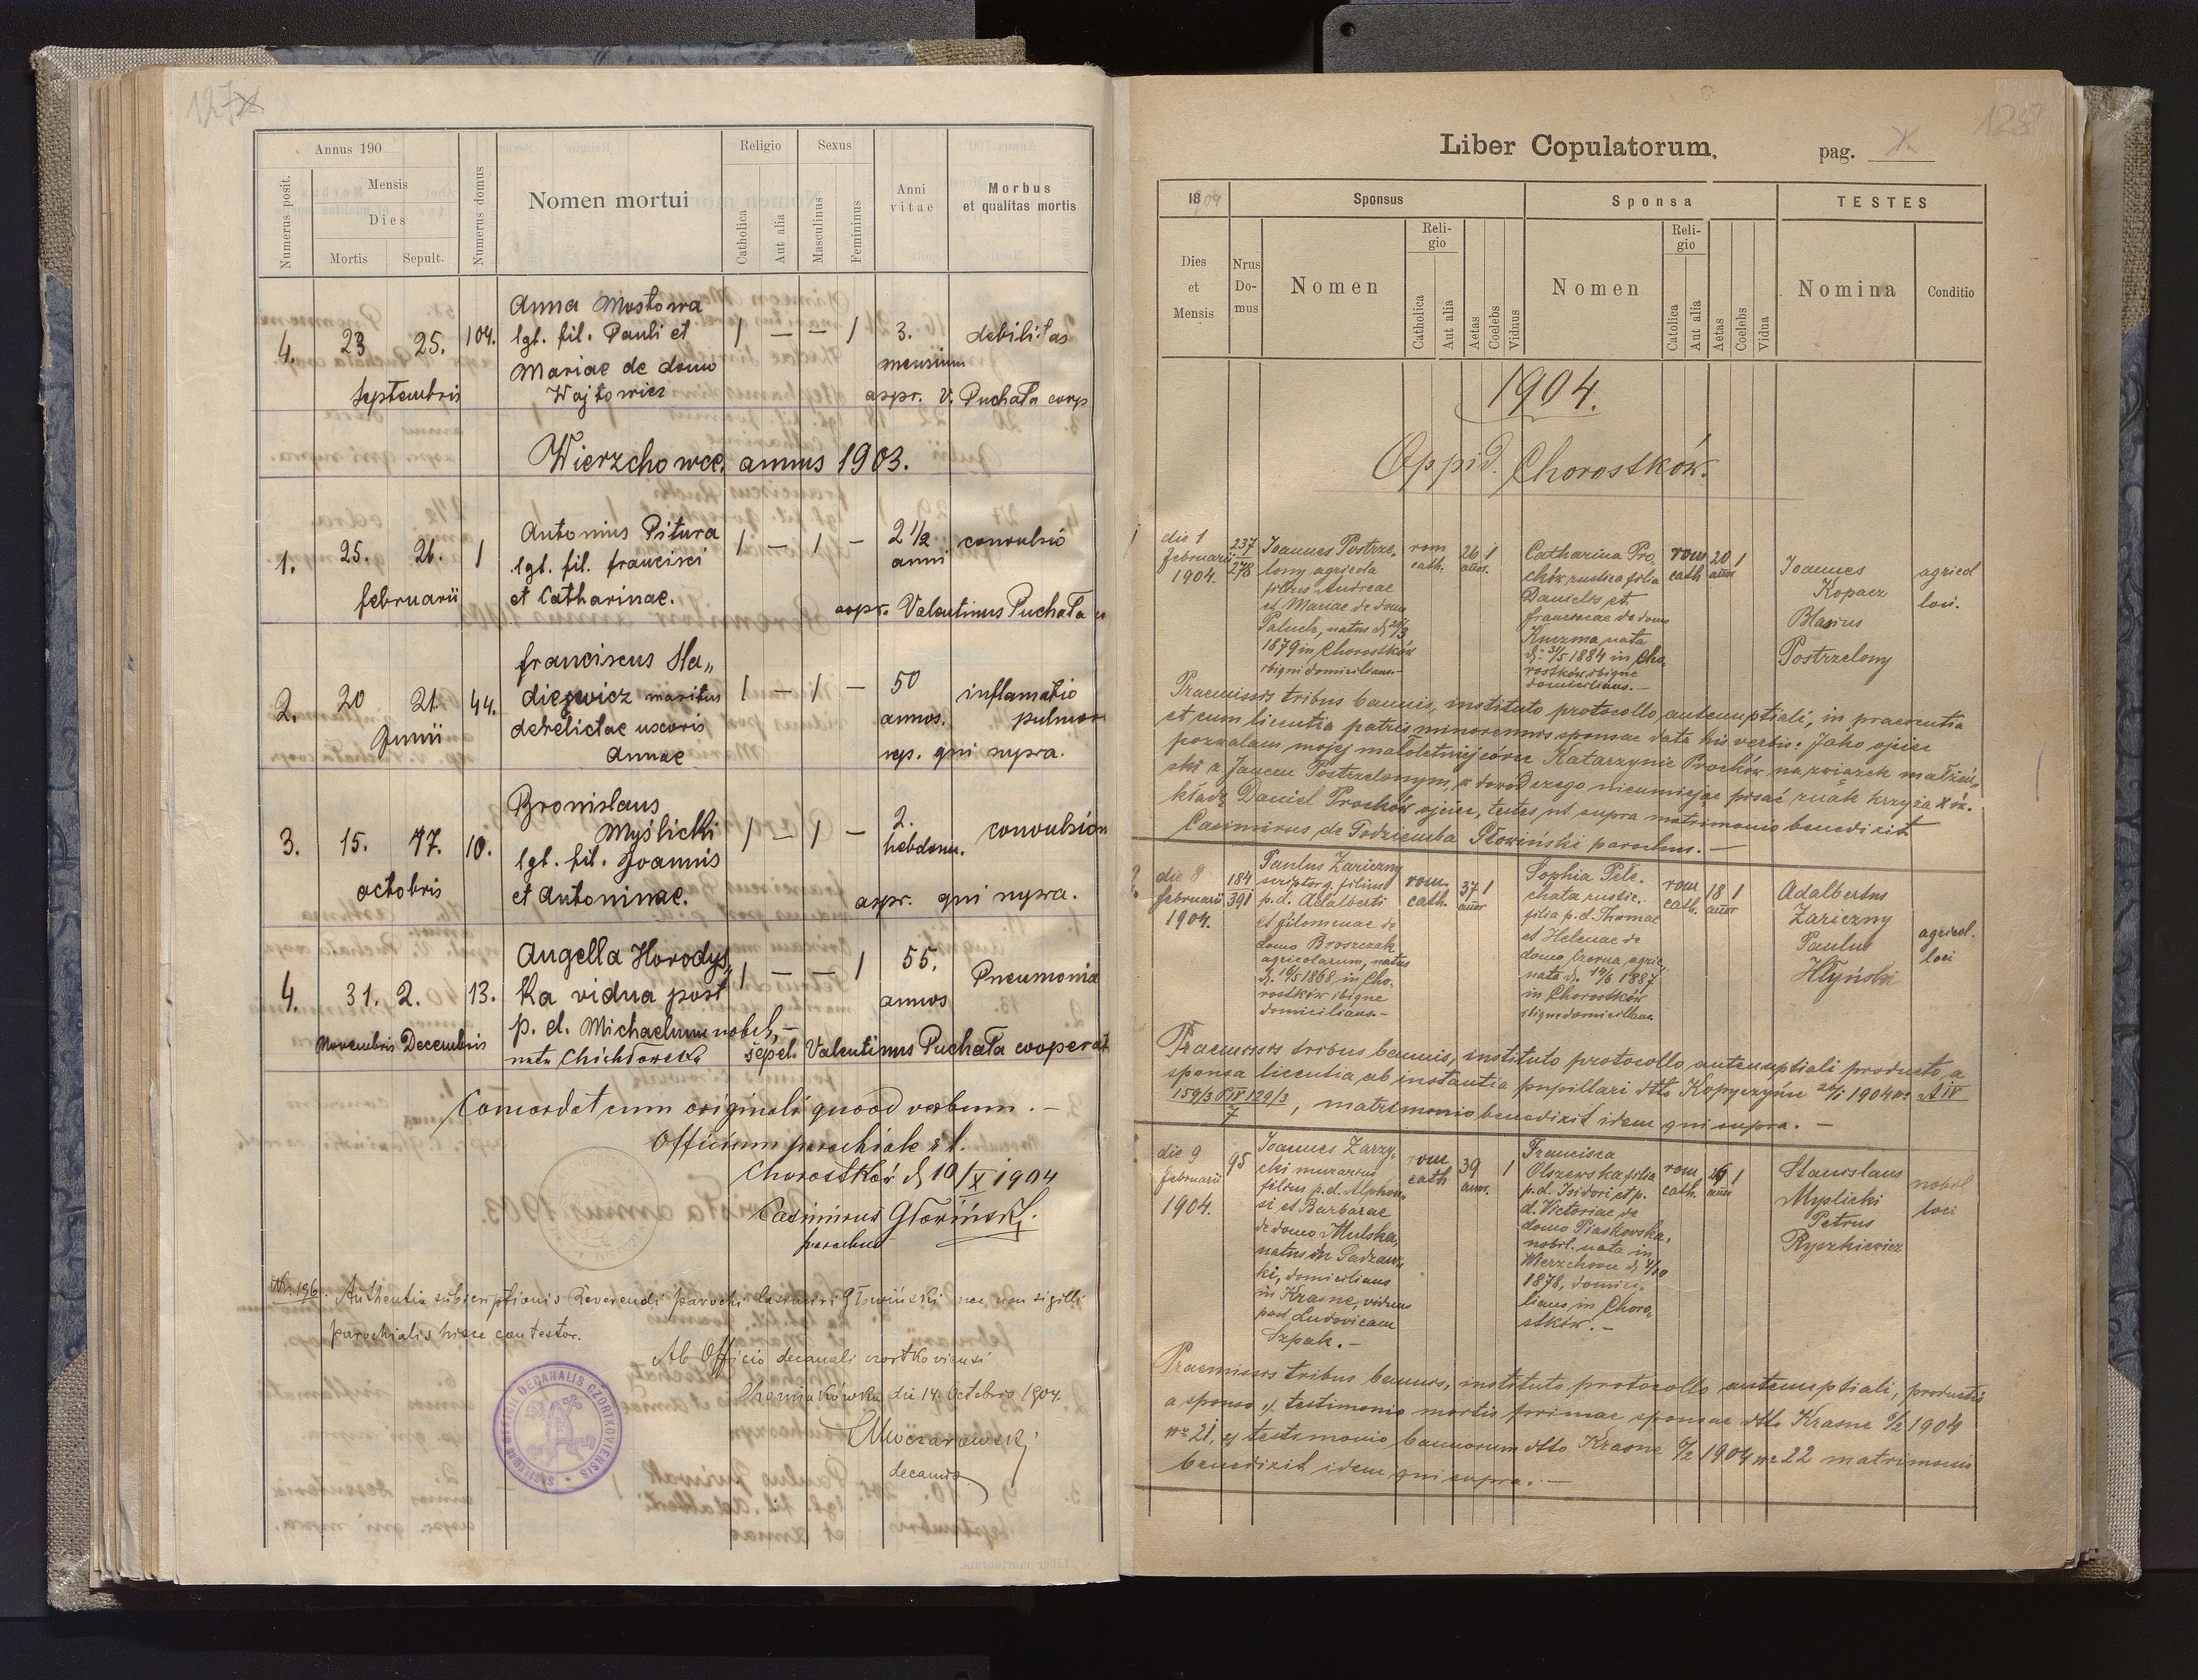 127
Annus 190
Numerus posit.
Mensis
Dies
Mortis
Sepult.
Numerus domus
Nomen mortui
Religio
Catholica
Aut alia
Sexus
Masculinus
Femininus
Anni vitae
Morbus
et qualitas mortis
4. 23 25. 104. Anna Mostowa 1 — — 1 3. debilitas
lgt. fil. Pauli et
Mariae de domo mensium
Septembris Wojtowicz aspr. V. Puchała coop
Wierzchowce annus 1903.
1. 25. 26. 1 Antonius Pitura 1 — 1 — 2 1/2 convulsio
lgt. fil. francisci anni
februarii et Catharinae. aspr. Valentinus Puchała
2. 20 21. 44. franciscus Ha„ 1 — 1 — 50 inflamatio
diejewicz maritus annos. pulmon
Junii derelictae uxoris
Annae sep. qui supra.
3. 15. 17. 10. Bronislaus 1 — 1 — 2. convulsion
Myślicki hebdom.
lgt. fil. Joannis
octobris et Antoninae. aspr. qui supra.
4. 31. 2. 13. Angella Horodys„ 1 — — 1 55. Pneumonia
ka vidua post annos
p. d. Michaelum nobil, —
Novembris Decembris nata sepel. Valentinus Puchała cooperat
Concordat cum originali quoad verbum. —
Officium parochiale r. l.
Chorostków d. 10/X 1904
Casimirus Głowiński.
parochus
Nr. 196. Authentia subscriptionis Reverendi parochi Casimiri Głowiński nec non sigilli
parochialis hisce contestor.
Ab Officio decanali czortkoviensi
die 14. Octobris 1904.
decanus
SIGILLUM OFFICII DECANALIS CZORTKOVIENSIS
128
Liber Copulatorum.
pag.
1804
Dies
et
Mensis
Nrus
Domus
Sponsus
Nomen
Religio
Catholica
Aut alia
Aetas
Coelebs
Vidnus
Sponsa
Nomen
Religio
Catolica
Aut alia
Aetas
Coelebs
Vidua
TESTES
Nomina
Conditio
1904.
Oppid. Chorostków.
1
die 1
februarii
1904.
237
278
Joannes Postrze„
lony agricola
filius Andreae
et Mariae de domo
Paluch, natus d. 24/3
1879 in Chorostków
ibique domicilians.—
rom
cath.
26 1
annor.
Catharina Pro„
chów rustica filia
Danielis et
franciscae de domo
Kuczma, nata
d. 31/5 1884 in Cho„
rostków ibique
domicilians.—
rom
cath
20 1
annor
Joannes
Kopacz
Blasius
Postrzelony
agricol
loci.
Praemissis tribus bannis, instituto protocollo antenuptiali, in praesentia
et cum licentia patris minorennis sponsae data his verbis: Jako ojciec
pozwalam mojej małoletniej córce Katarzynie Prochów na związek małżeń„
ski z Janem Postrzelonym, w dowód czego nieumiejąc pisać znak krzyża X św.
kładę Daniel Prochów ojciec, testes ut supra matrimonio benedixit
Casimirus de Godziemba Głowiński parochus. —
2.
die 8
februarii
1904.
184
391
Paulus Zariczny
scriptor g. filius
p. d. Adalberti
et filomenae de
domo Broszczak
agricolarum, natus
d. 16/5 1868 in Cho„
rostków ibique
domicilians.—
rom.
cath.
37 1
annor
Sophia Pełe„
chata rustic.
filia p. d. Thomae
et Helenae de
domo Czorna, agric.
nata d. 14/6 1887
in Chorostków
ibique domicilians
rom
cath.
18 1
annor
Adalbertus
Zariczny
Paulus
Hłyński
agricol.
loci
Praemissis tribus bannis, instituto protocollo antenuptiali producto, a
sponsa licentia ab instantia pupillari dtto Kopyczyńce 26/I 1904 nr A IV
159/3 P IV 129/3
7 , matrimonio benedixit idem qui supra. —
die 9
februarii
1904.
95
Joannes Zarzy„
cki murarius
filius p. d. Alphon„
si et Barbarae
de domo Mulska,
natus in
domicilians
in Krasne, viduus
post Ludovicam
Szpak. —
rom
cath
39
annor.
1
Francisca
Olszewska filia
p. d. Isidori et p.
d. Victoriae de
domo Piaskowska,
nobil. nata in
Wierzchowce d. 4/10
1878, domici„
lians in Choro„
stków. —
rom
cath.
26 1
annor
Stanislaus
Myslicki
Petrus
Ryszkiewicz
nobil
loci
Praemissis tribus bannis, instituto protocollo antenuptiali, productis
a sponso 1) testimonio mortis primae sponsae dtto Krasne 6/2 1904
nr 21, 2) testimonio bannorum dtto Krasne 6/2 1904 nr 22 matrimonio
benedixit idem qui supra. —